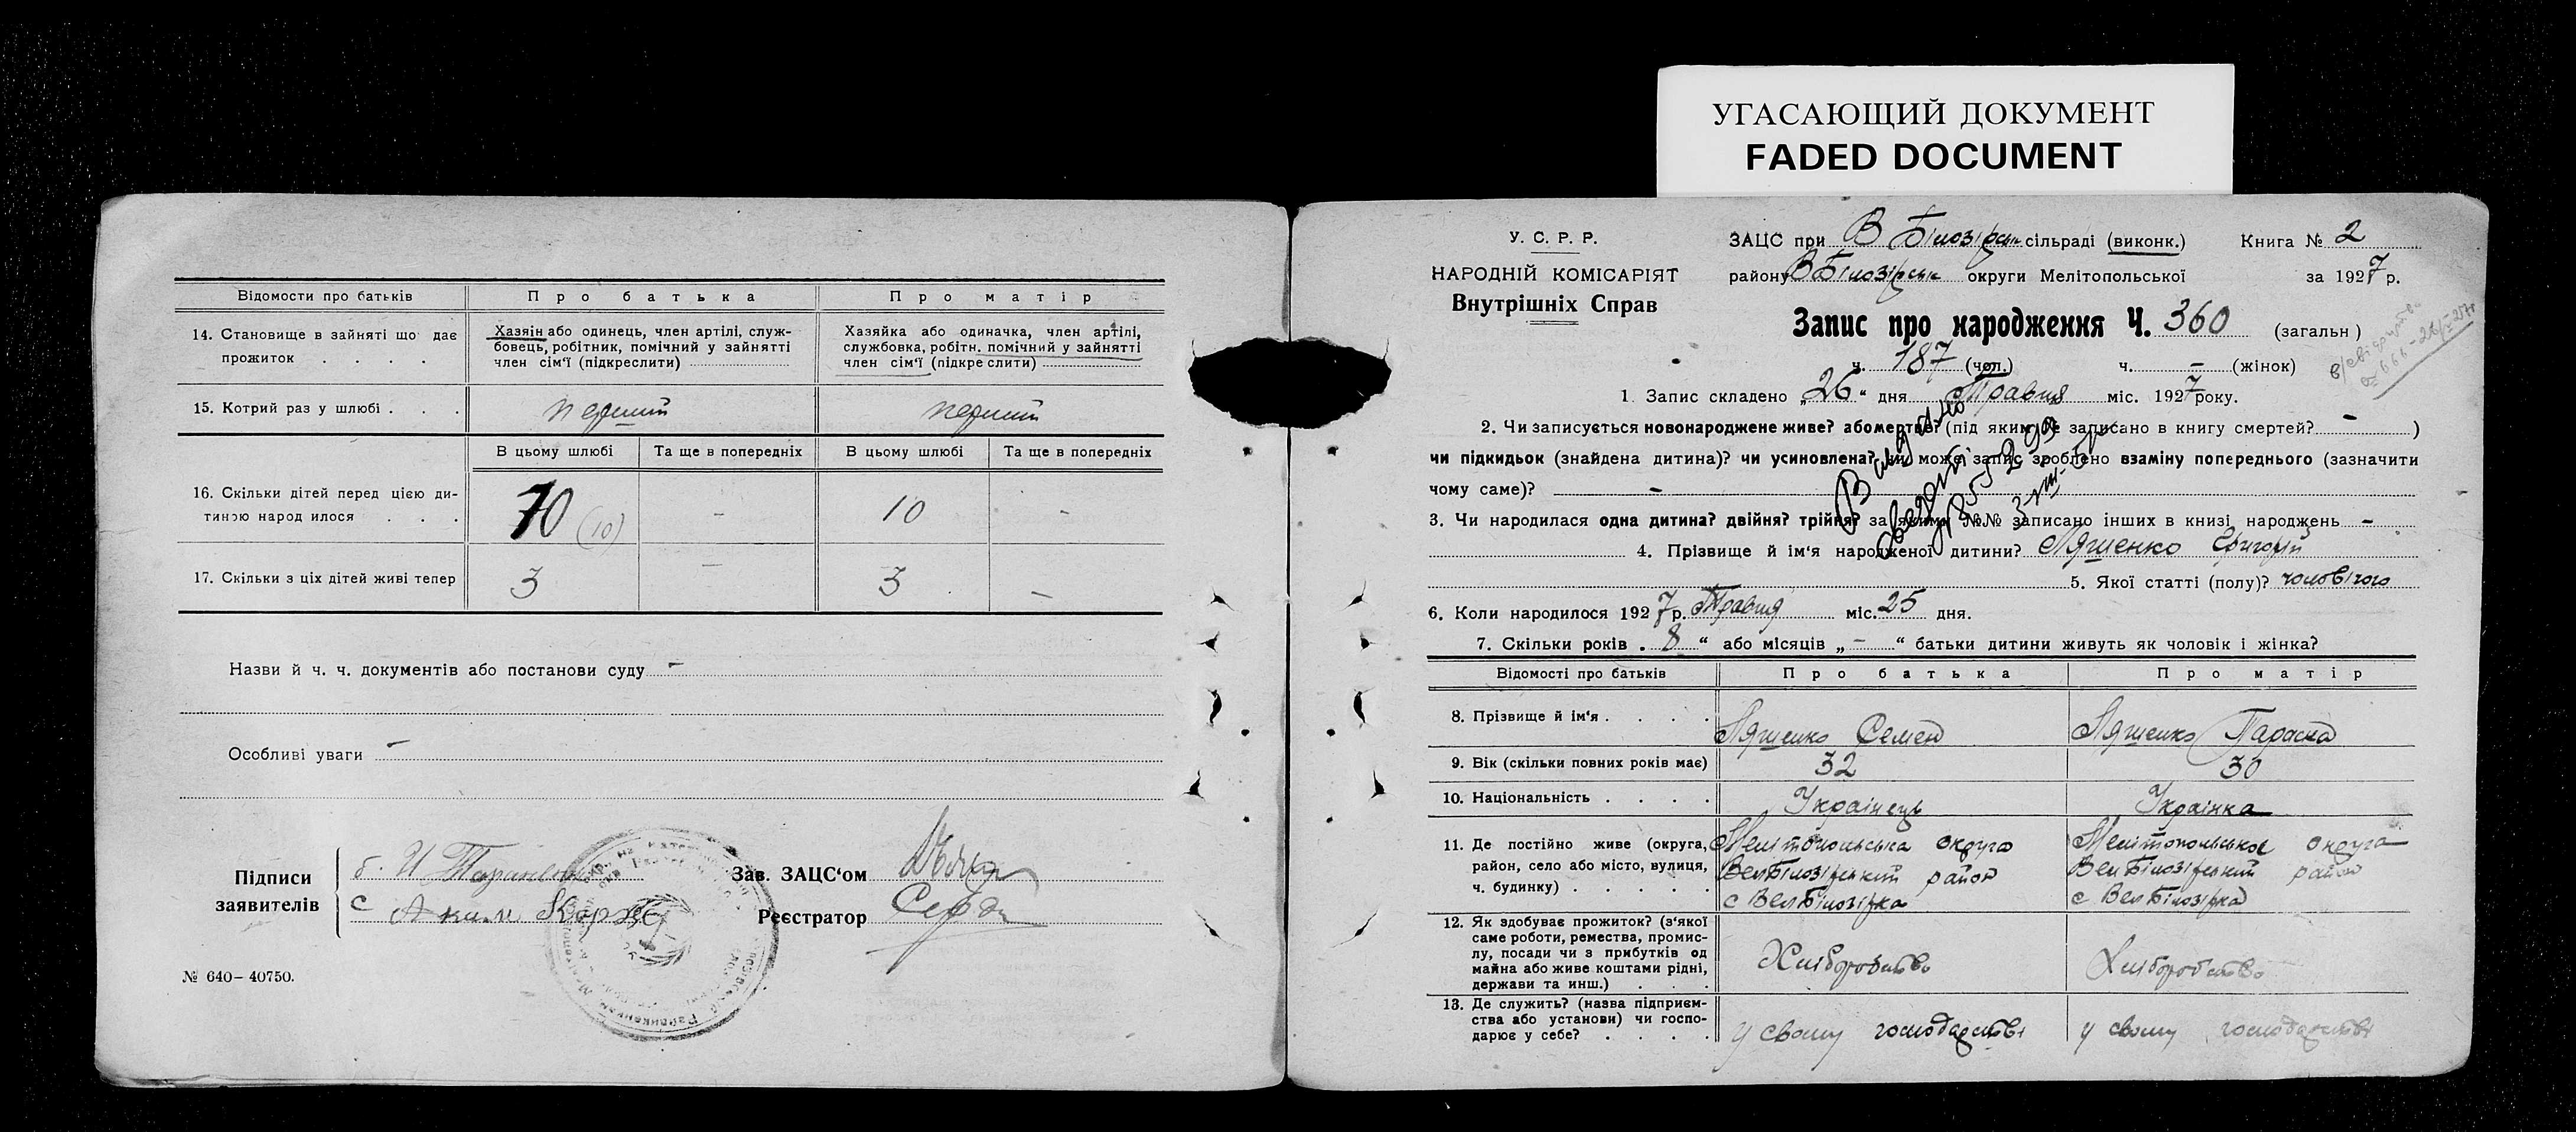 УГАСАЮЩИЙ ДОКУМЕНТ
FADED DOCUMENT
Відомости про батьків Про батька Про матір
14. Становище в зайняті що дає прожиток . . . .
Хазяін або одинець, член артілі, служ-
бовець, робітник, помічний у зайнятті
член сім‘ї (підкреслити)
Хазяйка або одиначка, член артілі,
службовка, робітн. помічний у зайнятті
член сім‘ї (підкреслити)
15. Котрий раз у шлюбі . . . перший перший
В цьому шлюбі Та ще в попередніх В цьому шлюбі Та ще в попередніх
16. Скільки дітей перед цією ди-
тиною народилося . . . 10 (10) – 10 –
17. Скільки з ціх дітей живі тепер 3 – 3 –
Назви й ч. ч. документів або постанови суду –
Особливі уваги –
Підписи
заявителів
Зав. ЗАЦС‘ом
Реєстратор
№ 640–40750.
У. С. Р. Р.
НАРОДНІЙ КОМІСАРІЯТ
Внутрішніх Справ
ЗАЦС при В Білозірськ сільраді (виконк.) Книга № 2
району В Білозірськ округи Мелітопольської за 1927 р.
Запис про народження Ч. 360 (загальн)
ч. 187 (чол.) ч. – (жінок)
1. Запис складено „26“ дня Травня міс. 1927 року.
2. Чи записується новонароджене живе? або мертве? (під яким № записано в книгу смертей? – )
чи підкидьок (знайдена дитина)? чи усиновлена? чи може запис зроблено взаміну попереднього (зазначити
чому саме)? –
3. Чи народилася одна дитина? двійня? трійня? за якими №№ записано інших в книзі народжень –
4. Прізвище й ім‘я народженої дитини? Ляшенко Григорій
5. Якої статті (полу)? чоловічого
6. Коли народилося 1927 р. Травня міс. 25 дня.
7. Скільки років . 8 “ або місяців „ – “ батьки дитини живуть як чоловік і жінка?
Відомості про батьків Про батька Про матір
8. Прізвище й ім‘я . . . . Ляшенко Семен Ляшенко Параска
9. Вік (скільки повних років має) 32 30
10. Національність . . . . Українець Українка
11. Де постійно живе (округа,
район, село або місто, вулиця,
ч. будинку) . . . . .
Мелітопольська округа
ВелБілозірський район
с ВелБілозірка
Мелітопольськоє округа
ВелБілозірський район
с ВелБілозірка
12. Як здобуває прожиток? (з‘якої
саме роботи, ремества, промис-
лу, посади чи з прибутків од
майна або живе коштами рідні,
держави та инш.) . . .
Хліборобство Хліборобство
13. Де служить? (назва підприєм-
ства або установи) чи госпо-
дарює у себе? . . . .
у свому господарстві у свому господарстві